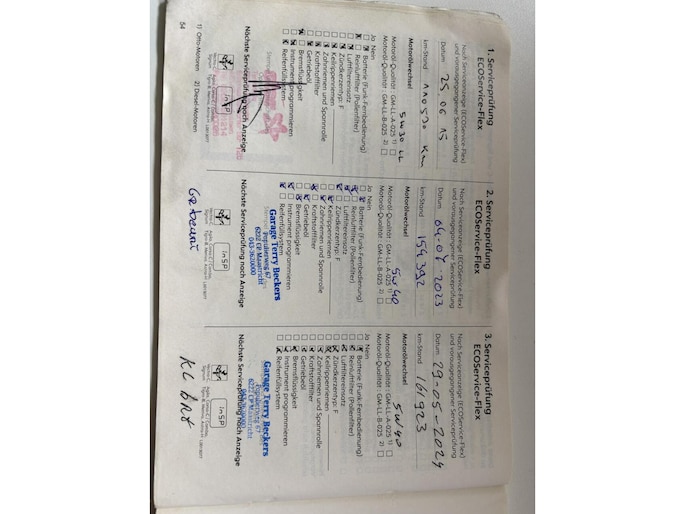 1. Serviceprüfung
ECOService-Flex
Nach Serviceanzeige (ECOService-Flex)
und vorausgegangener Serviceprüfung
Datum 25 06 15
km-Stand 110530 Km
Motorölwechsel
5W30 LL
Motoröl-Qualität: GM-LL-A-025 1)
Motoröl-Qualität: GM-LL-B-025 2)
Ja Nein
Batterie (Funk-Fernbedienung)
Reinluftfilter (Pollenfilter)
Luftfiltereinsatz
Zündkerzentyp: F
Keilrippenriemen
Zahnriemen und Spannrolle
Kraftstofffilter
Getriebeöl
Bremsflüssigkeit
Instrument programmieren
Reifenfüllsystem
Nächste Serviceprüfung nach Anzeige
InSP
1) Otto-Motoren 2) Diesel-Motoren
54
2. Serviceprüfung
ECOService-Flex
Nach Serviceanzeige (ECOService-Flex)
und vorausgegangener Serviceprüfung
Datum 04-07-2023
km-Stand 154392
Motorölwechsel
5W40
Motoröl-Qualität: GM-LL-A-025 1)
Motoröl-Qualität: GM-LL-B-025 2)
Ja Nein
Batterie (Funk-Fernbedienung)
Reinluftfilter (Pollenfilter)
Luftfiltereinsatz
Zündkerzentyp: F
Keilrippenriemen
Zahnriemen und Spannrolle
Kraftstofffilter
Getriebeöl
Bremsflüssigkeit
Instrument programmieren
Reifenfüllsystem
Garage Terry Beckers
6222 CP Maastricht
043-3620003
Nächste Serviceprüfung nach Anzeige
InSP
3. Serviceprüfung
ECOService-Flex
Nach Serviceanzeige (ECOService-Flex)
und vorausgegangener Serviceprüfung
Datum 29-05-2024
km-Stand 161923
Motorölwechsel
5W40
Motoröl-Qualität: GM-LL-A-025 1)
Motoröl-Qualität: GM-LL-B-025 2)
Ja Nein
Batterie (Funk-Fernbedienung)
Reinluftfilter (Pollenfilter)
Luftfiltereinsatz
Zündkerzentyp: F
Keilrippenriemen
Zahnriemen und Spannrolle
Kraftstofffilter
Getriebeöl
Bremsflüssigkeit
Instrument programmieren
Reifenfüllsystem
Garage Terry Beckers
6222 CP Maastricht
Nächste Serviceprüfung nach Anzeige
InSP
KL BRT